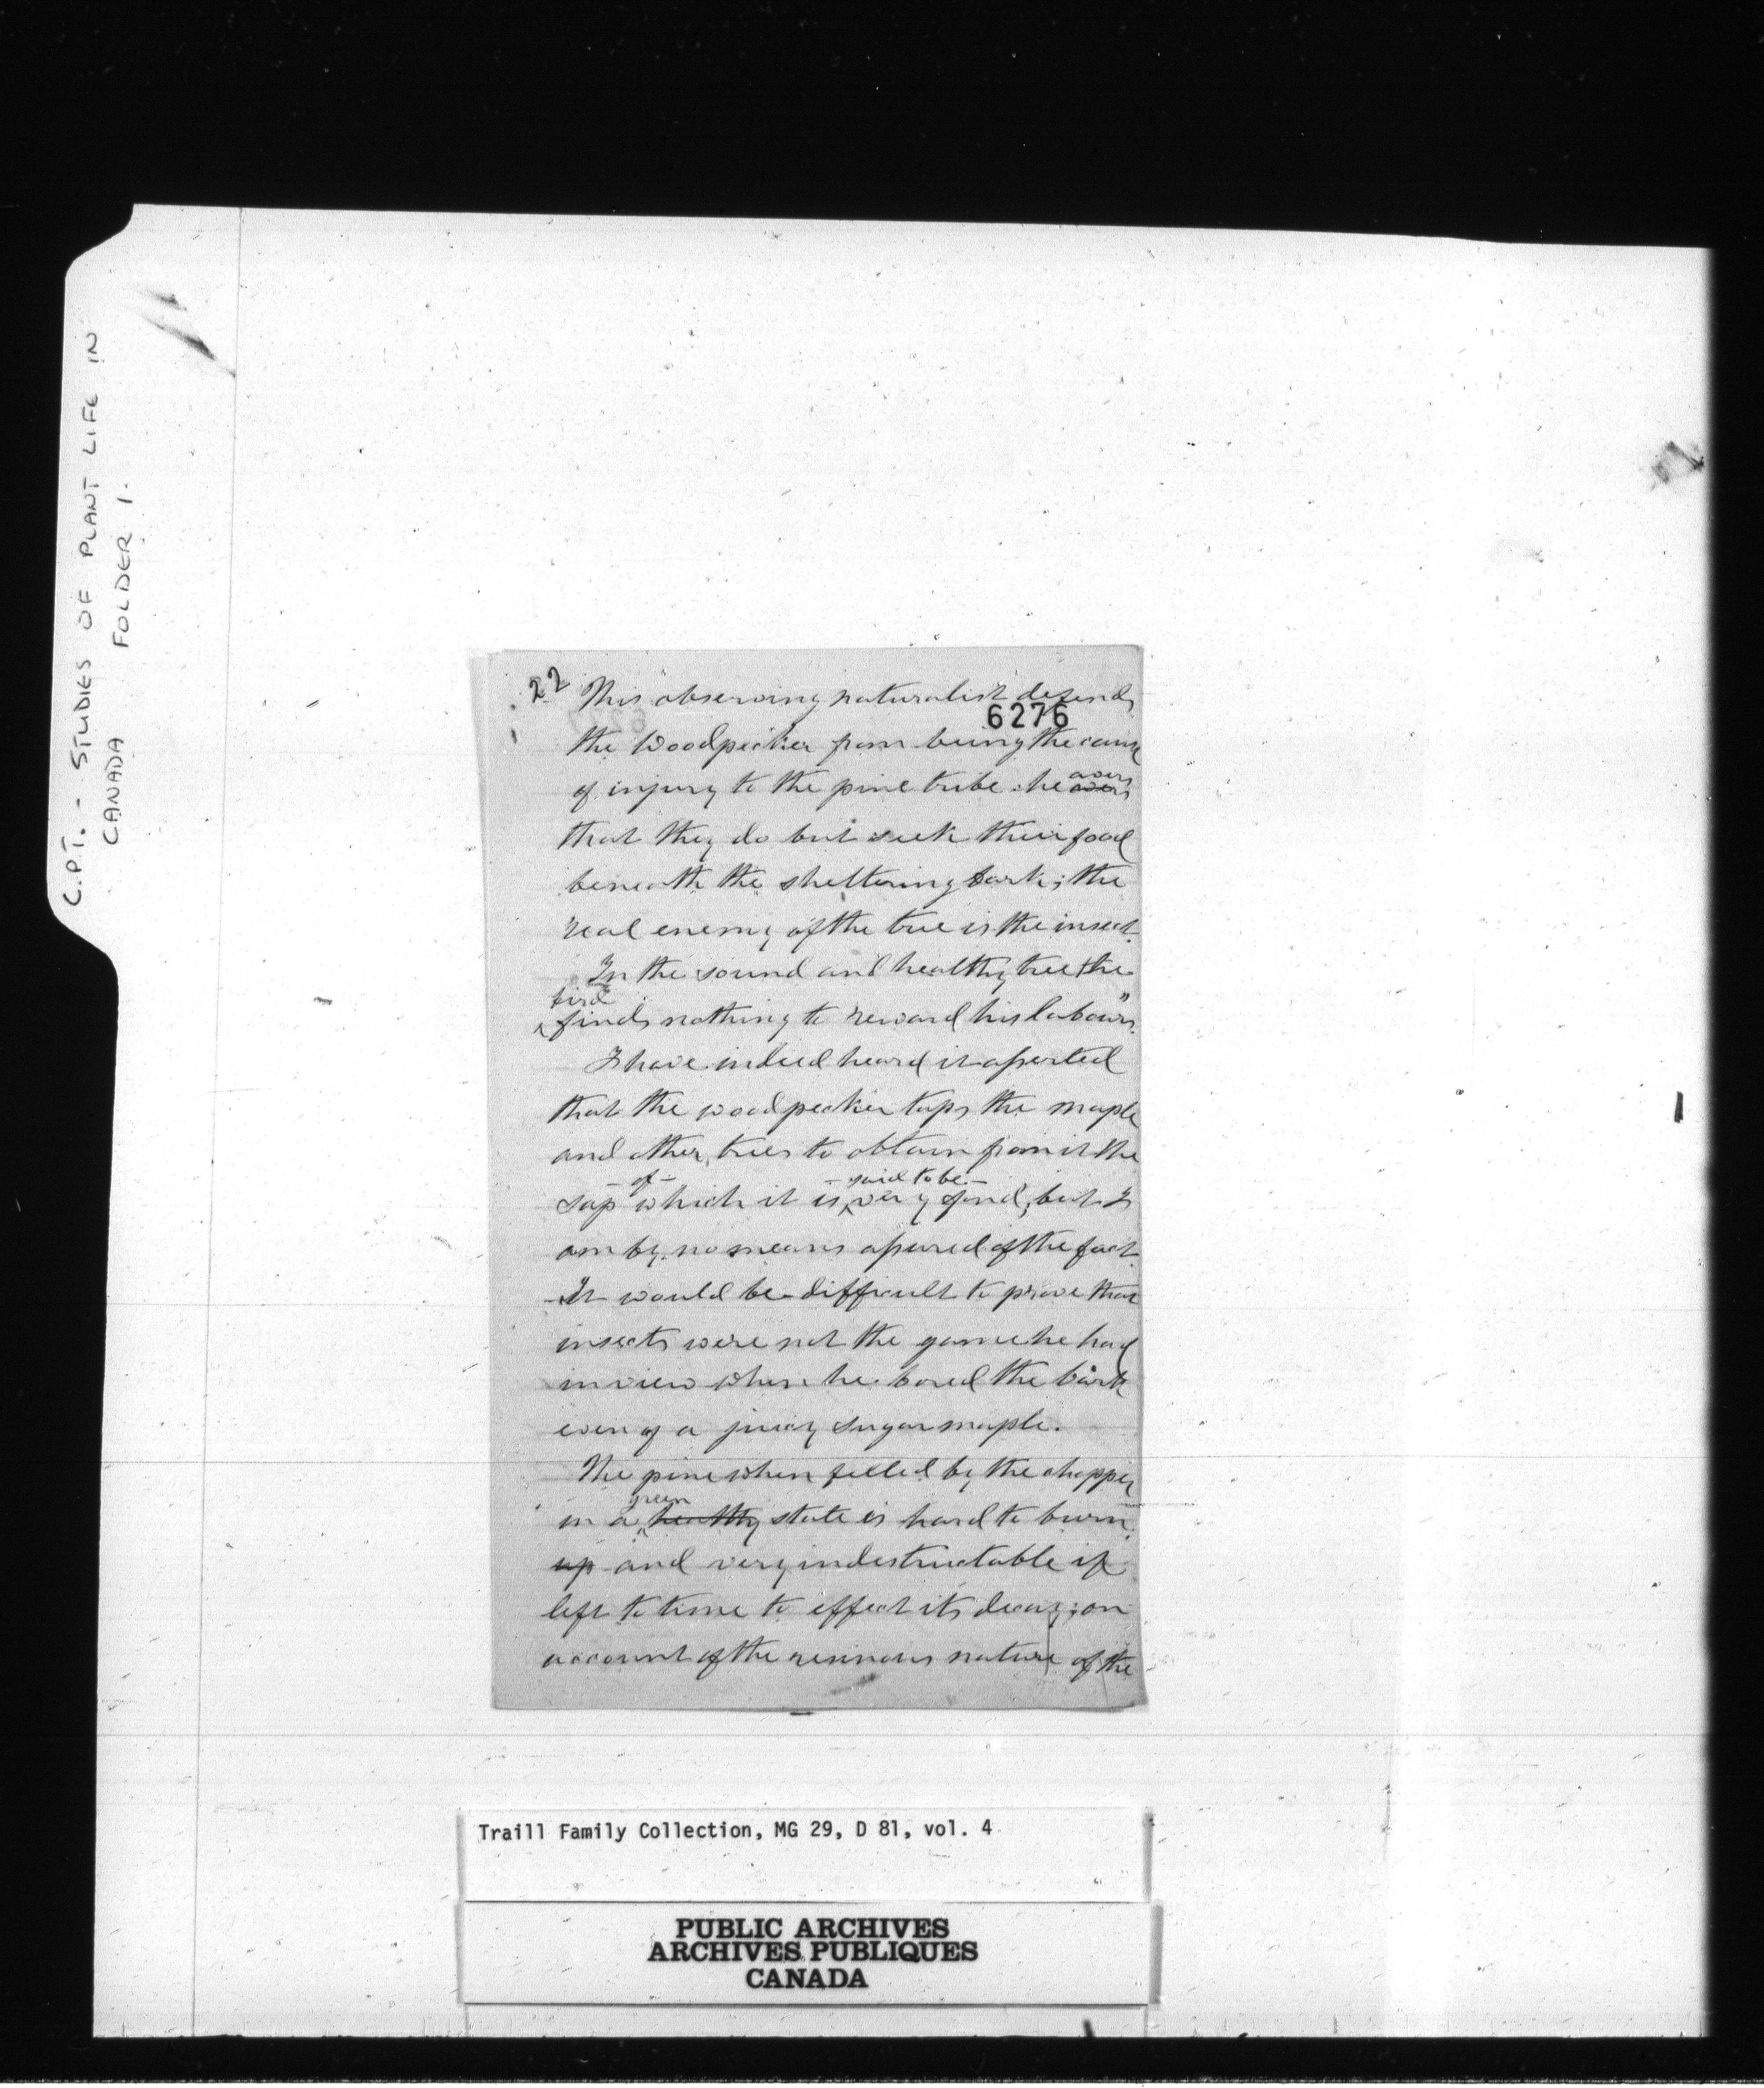 C.P.T. - STUDIES OF PLANT LIFE IN
CANADA FOLDER 1.
22 This observing naturalist defends
6276
the Woodpecker from being the cause
of injury to the pine tribe. he avers avers
that they do but seek their food
beneath the sheltering bark; the
real enemy of the tree is the insect.
In the sound and healthy tree the
bird
finds nothing to reward his labours"
I have indeed heard it asserted
that the woodpecker taps the maple
and other trees to obtain from it the
- of - - said to be -
sap which it is very fond, but I
am by no means assured of the fact.
It would be difficult to prove that
insects were not the game he had
in view when he bored the bark
even of a juicy sugar maple.
The pine when felled by the chopper
green
in a healthy state is hard to burn
up and very indestructable if
left to time to effect its decay; on
account of the resinous nature of the
Traill Family Collection, MG 29, D 81, vol. 4
PUBLIC ARCHIVES
ARCHIVES PUBLIQUES
CANADA